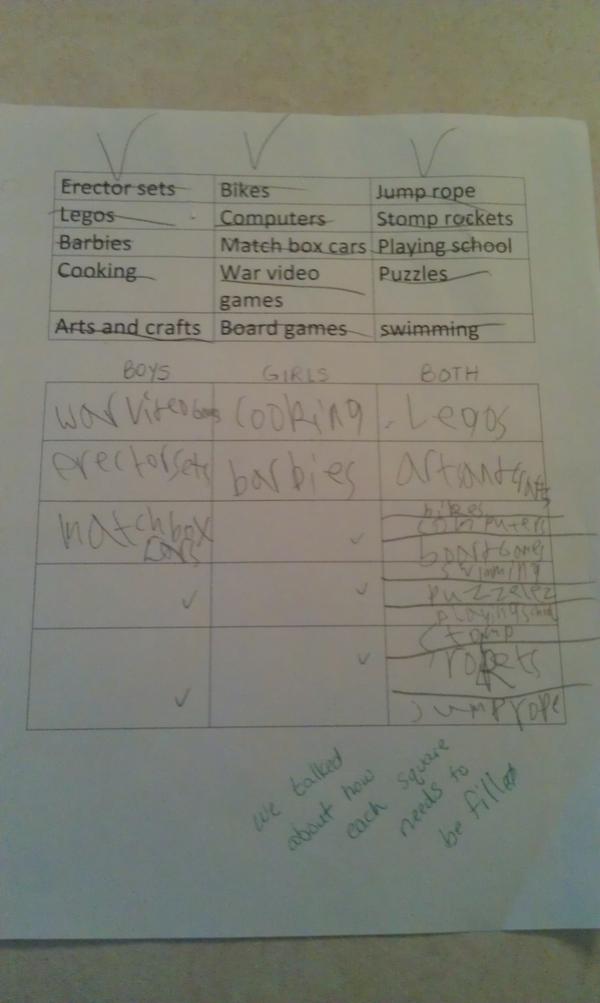 Erector sets Bikes Jump rope
Legos Computers Stomp rockets
Barbies Match box cars Playing school
Cooking War video games Puzzles
Arts and crafts Board games swimming
BOYS GIRLS BOTH
war video cooking Legos
erector sets barbies
matchbox bikes
cars computers
board Games
swimming
puzzelez
playing school
stomp
rokets
jump rope
we talked
about how
each square
needs to
be filled